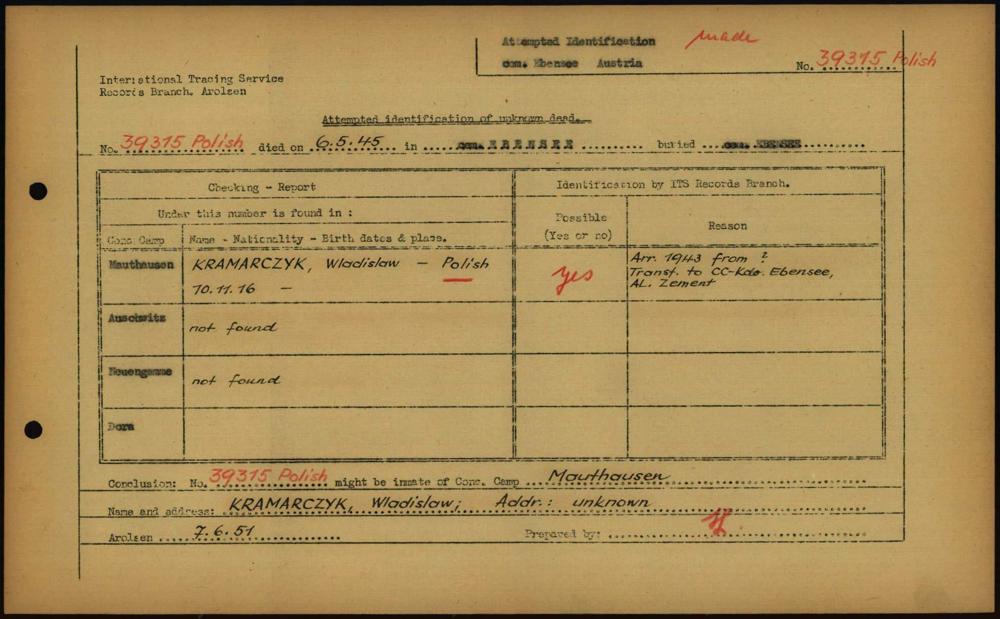 Attempted Identification made
cem. Ebensee Austria
No. 39315 Polish
International Tracing Service
Records Branch, Arolsen
Attempted identification of unknown dead.
No. 39315 Polish died on 6.5.45 in cem. EBENSEE buried cem. EBENSEE
Checking - Report
Identification by ITS Records Branch.
Under this number is found in :
Possible
(Yes or no)
Reason
Conc Camp
Name - Nationality - Birth dates & place.
Mauthausen
KRAMARCZYK, Wladislaw — Polish
10.11.16 —
yes
Arr. 1943 from ?
Transf. to CC-Kdo. Ebensee,
AL. Zement
Auschwitz
not found
Neuengamme
not found
Dora
Conclusion: No. 39315 Polish might be inmate of Conc. Camp Mauthausen
Name and address: KRAMARCZYK, Wladislaw; Addr.: unknown
Arolsen 7.6.51
Prepared by: